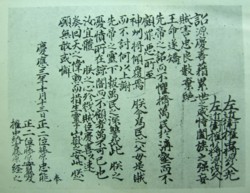 左近衛權中將源久光
左近衛權少將源茂久
詔源慶喜藉累世之威恃闔族之強妄
賊害忠良數棄絕
王命遂矯
先帝之詔而不懼擠萬民於溝壑而不
顧罪惡所至
神州將傾覆焉朕今為民之父母是賊
而不討何以上謝
先帝之靈下報萬民之深讐哉此朕之
憂憤所在諒闇而不顧者萬不可已也
汝宜體朕之心殄戮賊臣慶喜以速
奏回天之偉勳而措生靈于山嶽之安此朕之
願無敢或懈
奉
慶應三年十月十三日 正二位藤原忠能
正二位藤原實愛
權中納言藤原經之